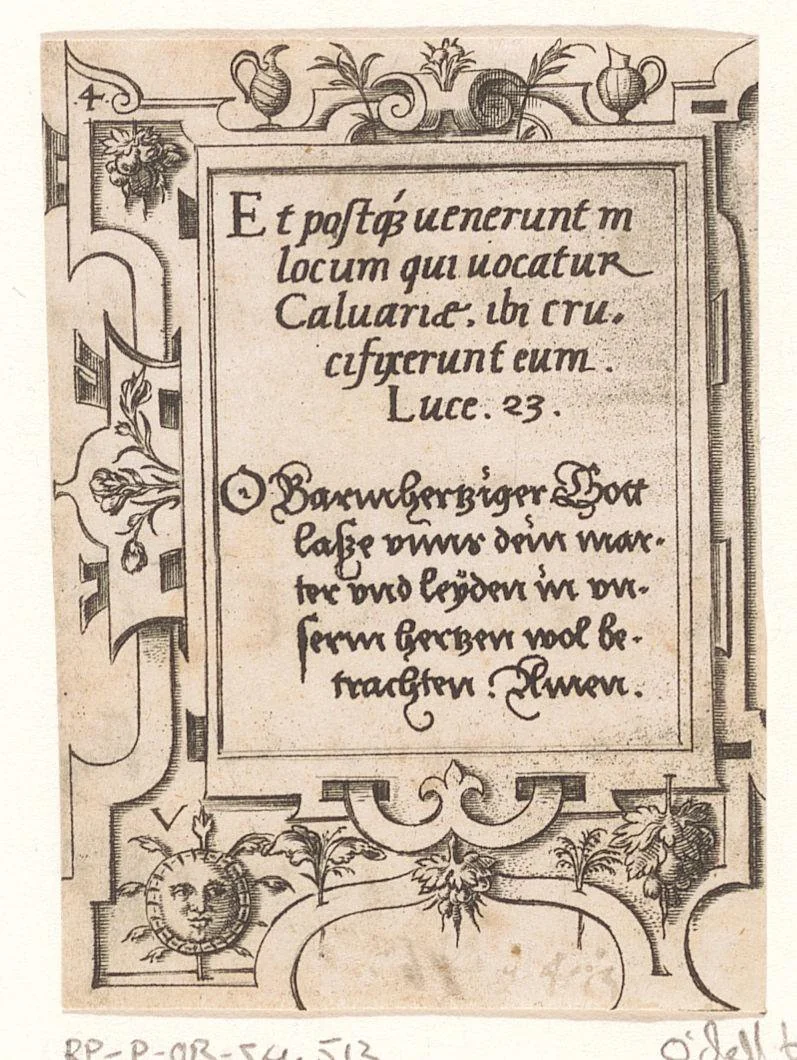 .4.
Et postq́ꝫ uenerunt in
locum qui uocatur
Caluariæ. ibi cru,
cifixerunt eum.
Luce. 23.
O Barmhertziger Gott
laße vnns dein mar-
ter vnd leÿden in vn-
serm hertzen wol be-
trachten. Amen.
V
RP-P-OB-54.513